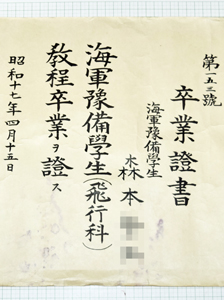 第一五三號
卒業證書
海軍豫備學生
森本
海軍豫備學生(飛行科)
教程卒業ヲ證ス
昭和十七年四月十五日